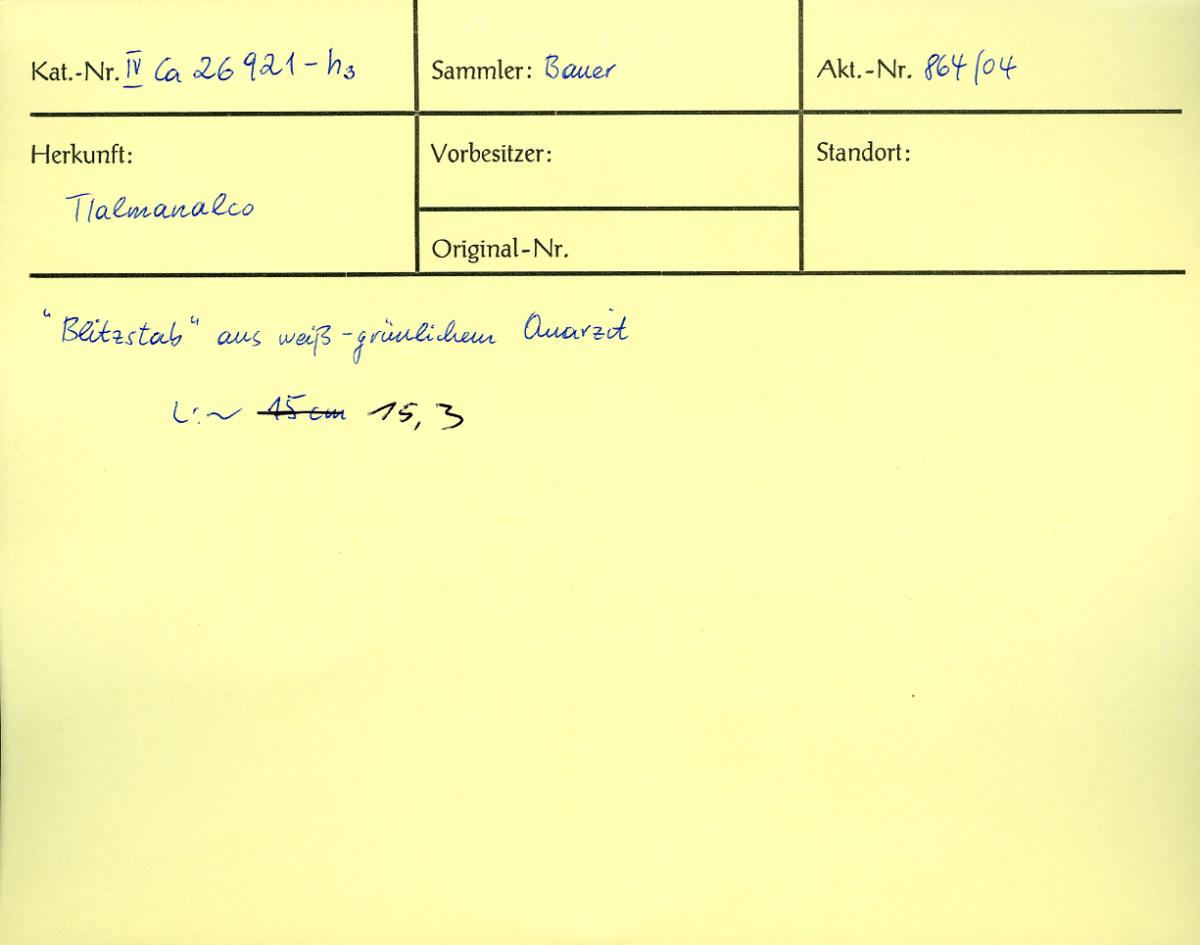 Kat.-Nr. IV Ca 26 921 - h3
Sammler: Bauer
Akt.-Nr. 864/04
Herkunft:
Tlalmanalco
Vorbesitzer:
Original-Nr.
Standort:
"Blitzstab" aus weiß-grünlichem Quarzit
L: ~ 15 cm 15,3